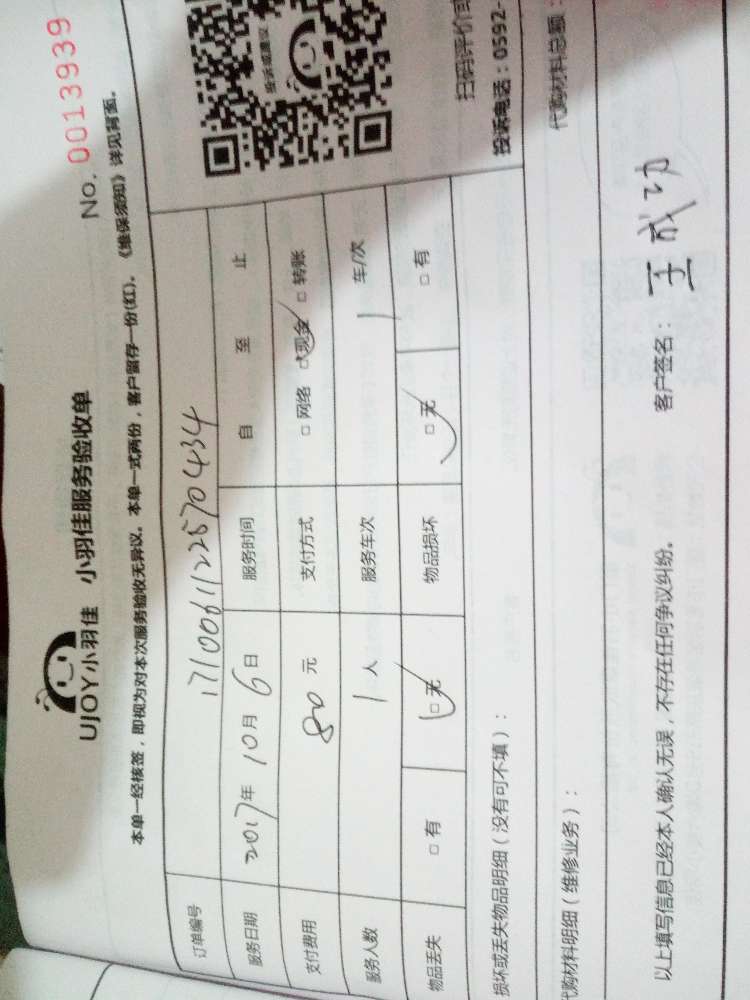 UJOY小羽佳 小羽佳服务验收单 No. 0013939
本单一经核签，即视为对本次服务验收无异议。本单一式两份，客户留存一份(红)。《维保须知》详见背面。
订单编号 171006112257 0434
服务日期 2017年 10月 6日 服务时间 自 至 止
支付费用 80 元 支付方式 □ 网络 □ 现金 □ 转账
服务人数 1 人 服务车次 1 车/次
物品丢失 □ 有 □ 无 物品损坏 □ 无 □ 有
投诉或建议
扫码评价或
投诉电话：0592-
损坏或丢失物品明细（没有可不填）：
代购材料明细（维修业务）： 代购材料总额：
以上填写信息已经本人确认无误，不存在任何争议纠纷。 客户签名： 王成功